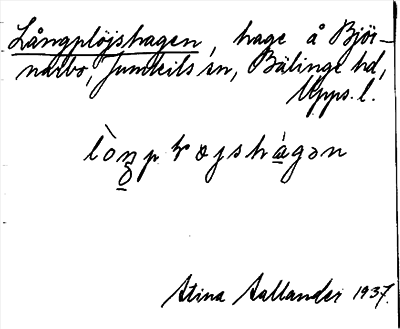 Långplöjshagen, hage å Björ-
narbo, Jumkils sn, Bälinge hd,
Upps. l.
Stina Aallander 1937.